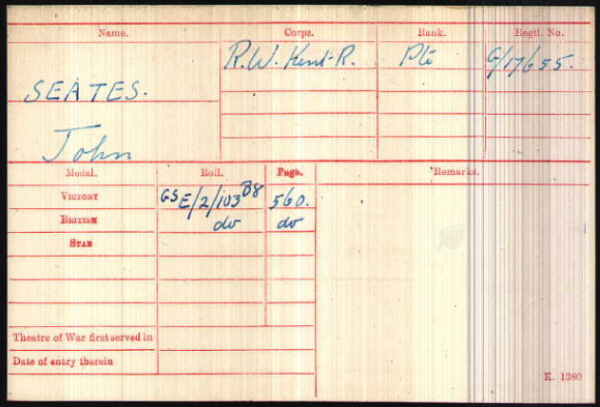 Name. Corps. Rank. Regtl. No.
R.W. Kent. R. Pte G/17655.
SEATES.
John
Medal. Roll. Page. Remarks.
VICTORY GSE/2/103 B8 560.
BRITISH do do
STAR
Theatre of War first served in
Date of entry therein
K. 1380